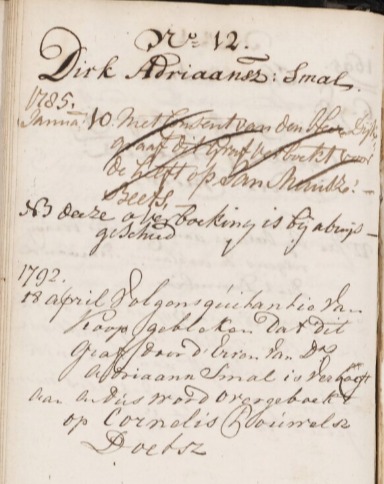 No. 12.
Dirk Adriaansz: Smal.
1785.
Januar: 10. Met Consent van den Heer Dijk-
graaf dit graf verboekt voor
de helft op Jan Muusz:
Beets,
NB deeze overboeking is bij abuijs
geschied
1792.
18 april Volgens quitantie Van
Koop gebleken dat dit
graf door d'Erven Van Dk
Adriaann Smal is Verkogt
aan en dus word overgeboekt
op Cornelis Douwelsz
Doetsz